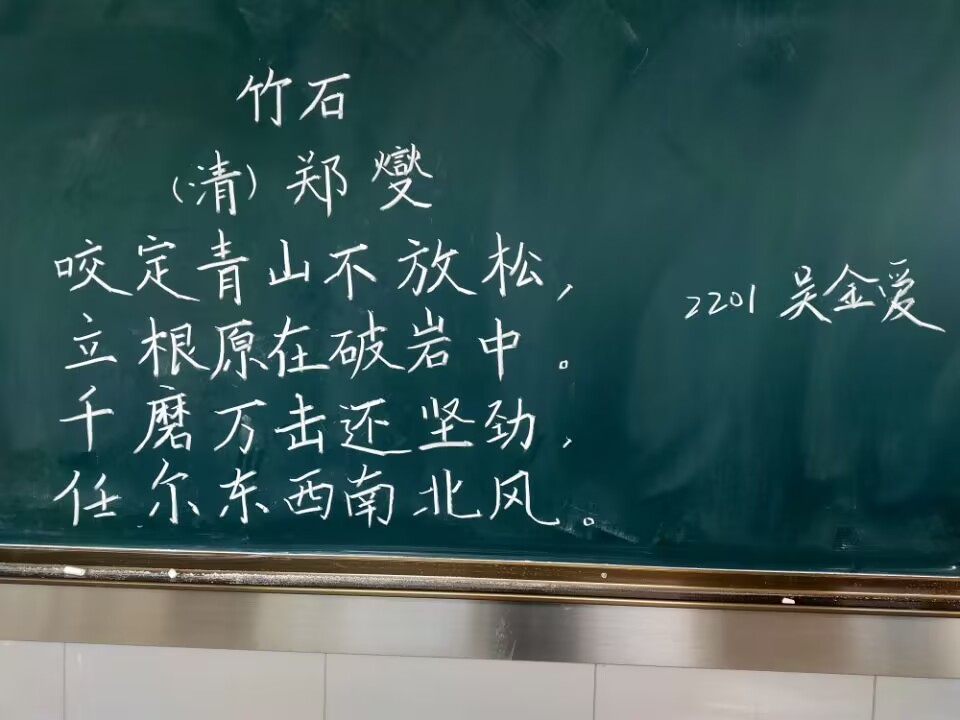 竹石
（清）郑燮
咬定青山不放松，
立根原在破岩中。
千磨万击还坚劲，
任尔东西南北风。
2201 吴金爱